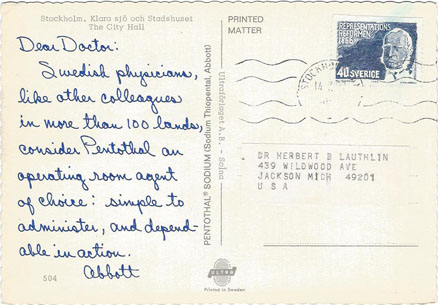 Stockholm, Klara sjö och Stadshuset
The City Hall
Dear Doctor:
Swedish physicians,
like other colleagues
in more than 100 lands,
consider Pentothal an
operating room agent
of choice: simple to
administer, and depend-
able in action.
Abbott
504
PENTOTHAL® SODIUM (Sodium Thiopental, Abbott)
Ultraförlaget A.B. - Solna
PRINTED
MATTER
REPRESENTATIONS
REFORMEN
40 SVERIGE
STOCKHOLM
DR HERBERT B LAUTHLIN
439 WILDWOOD AVE
JACKSON MICH 49201
U S A
ULTRA
Printed in Sweden